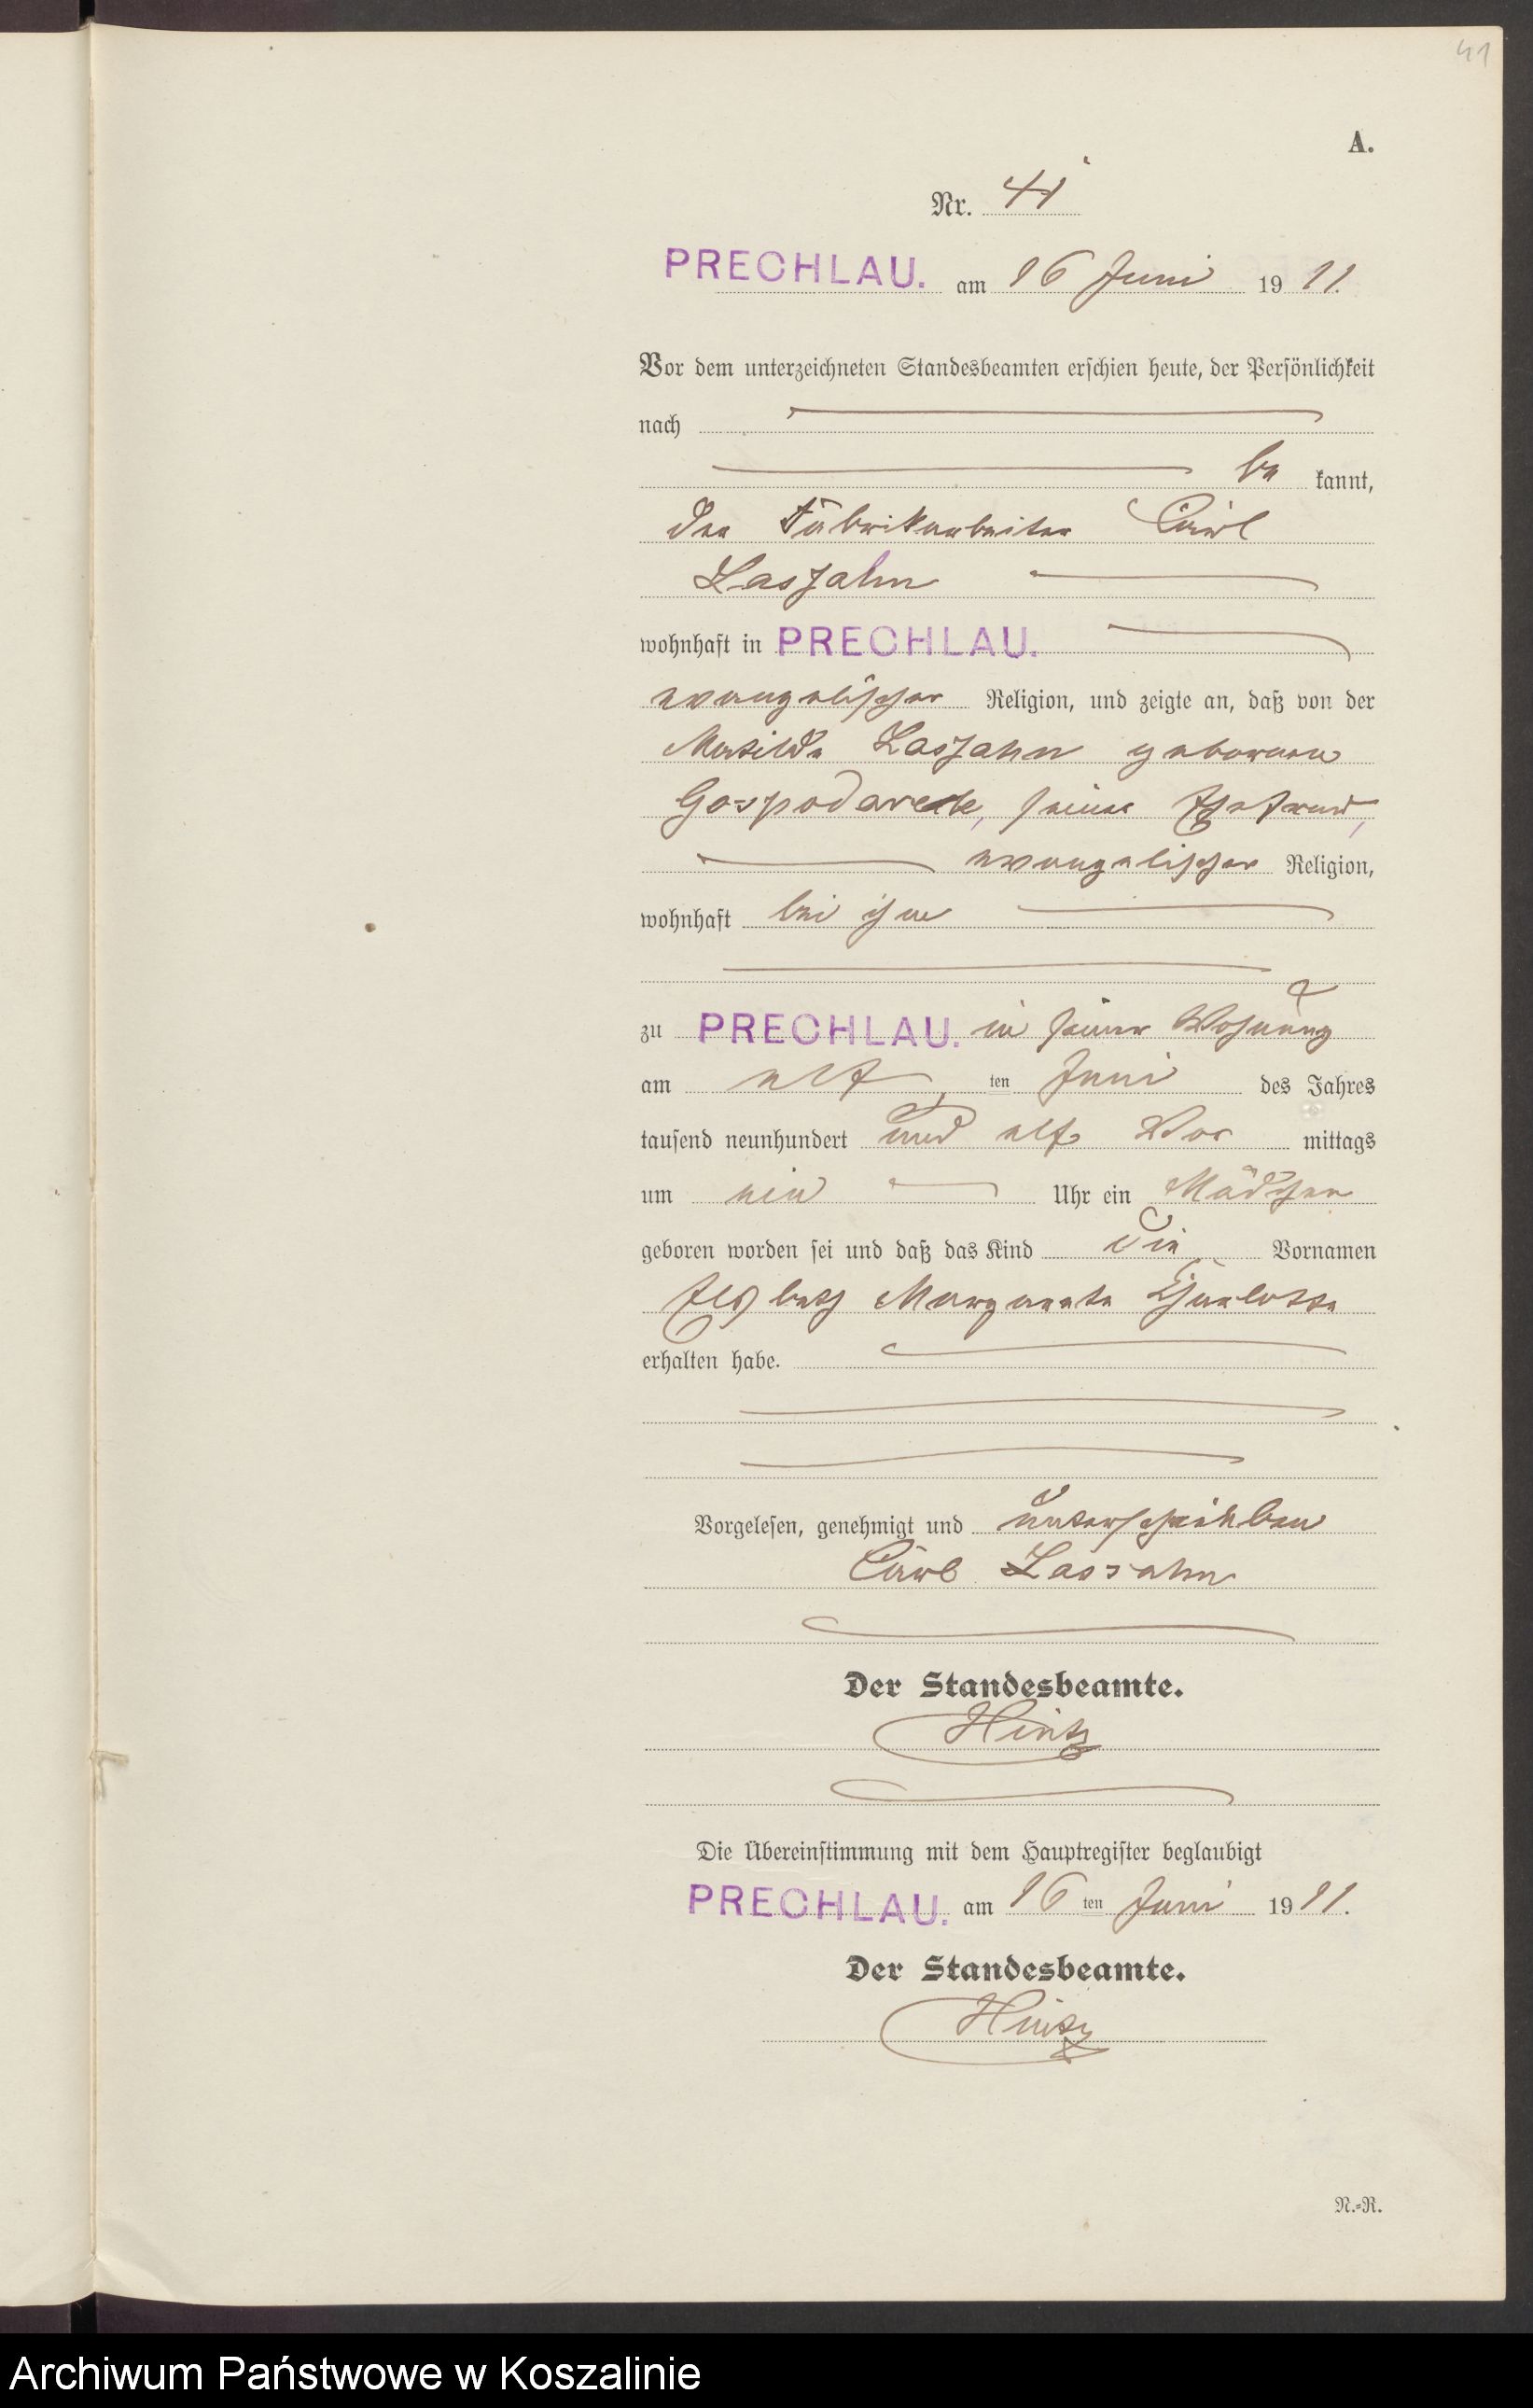 41
A.
Nr. 41
PRECHLAU. am 16 Juni 1911.
Vor dem unterzeichneten Standesbeamten erschien heute, der Persönlichkeit
nach
be kannt,
der Fabrikarbeiter Carl
Lassahn
wohnhaft in PRECHLAU.
evangelischer Religion, und zeigte an, daß von der
Matilde Lassahn geborene
seine Ehefrau,
evangelischer Religion,
wohnhaft bei ihm
zu PRECHLAU. in seiner Wohnung
am elf ten Juni des Jahres
tausend neunhundert und elf Vor mittags
um ein Uhr ein Mädchen
geboren worden sei und daß das Kind die Vornamen
Elsbeth Margarete Charlotte
erhalten habe.
Vorgelesen, genehmigt und unterschrieben
Carl Lassahn
Der Standesbeamte.
Hintz
Die Übereinstimmung mit dem Hauptregister beglaubigt
PRECHLAU. am 16 ten Juni 1911.
Der Standesbeamte.
Hintz
N.=R.
Archiwum Państwowe w Koszalinie